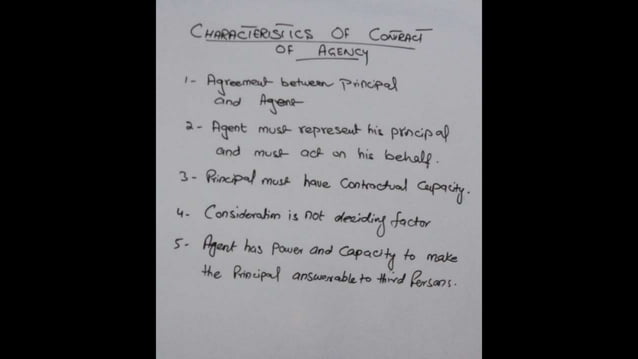 CHARACTERISTICS OF CONTRACT
OF AGENCY
1- Agreement between Principal
and Agent
2- Agent must represent his principal
and must act on his behalf.
3- Principal must have Contractual Capacity.
4- Consideration is not deciding factor
5- Agent has Power and Capacity to make
the Principal answerable to third Persons.